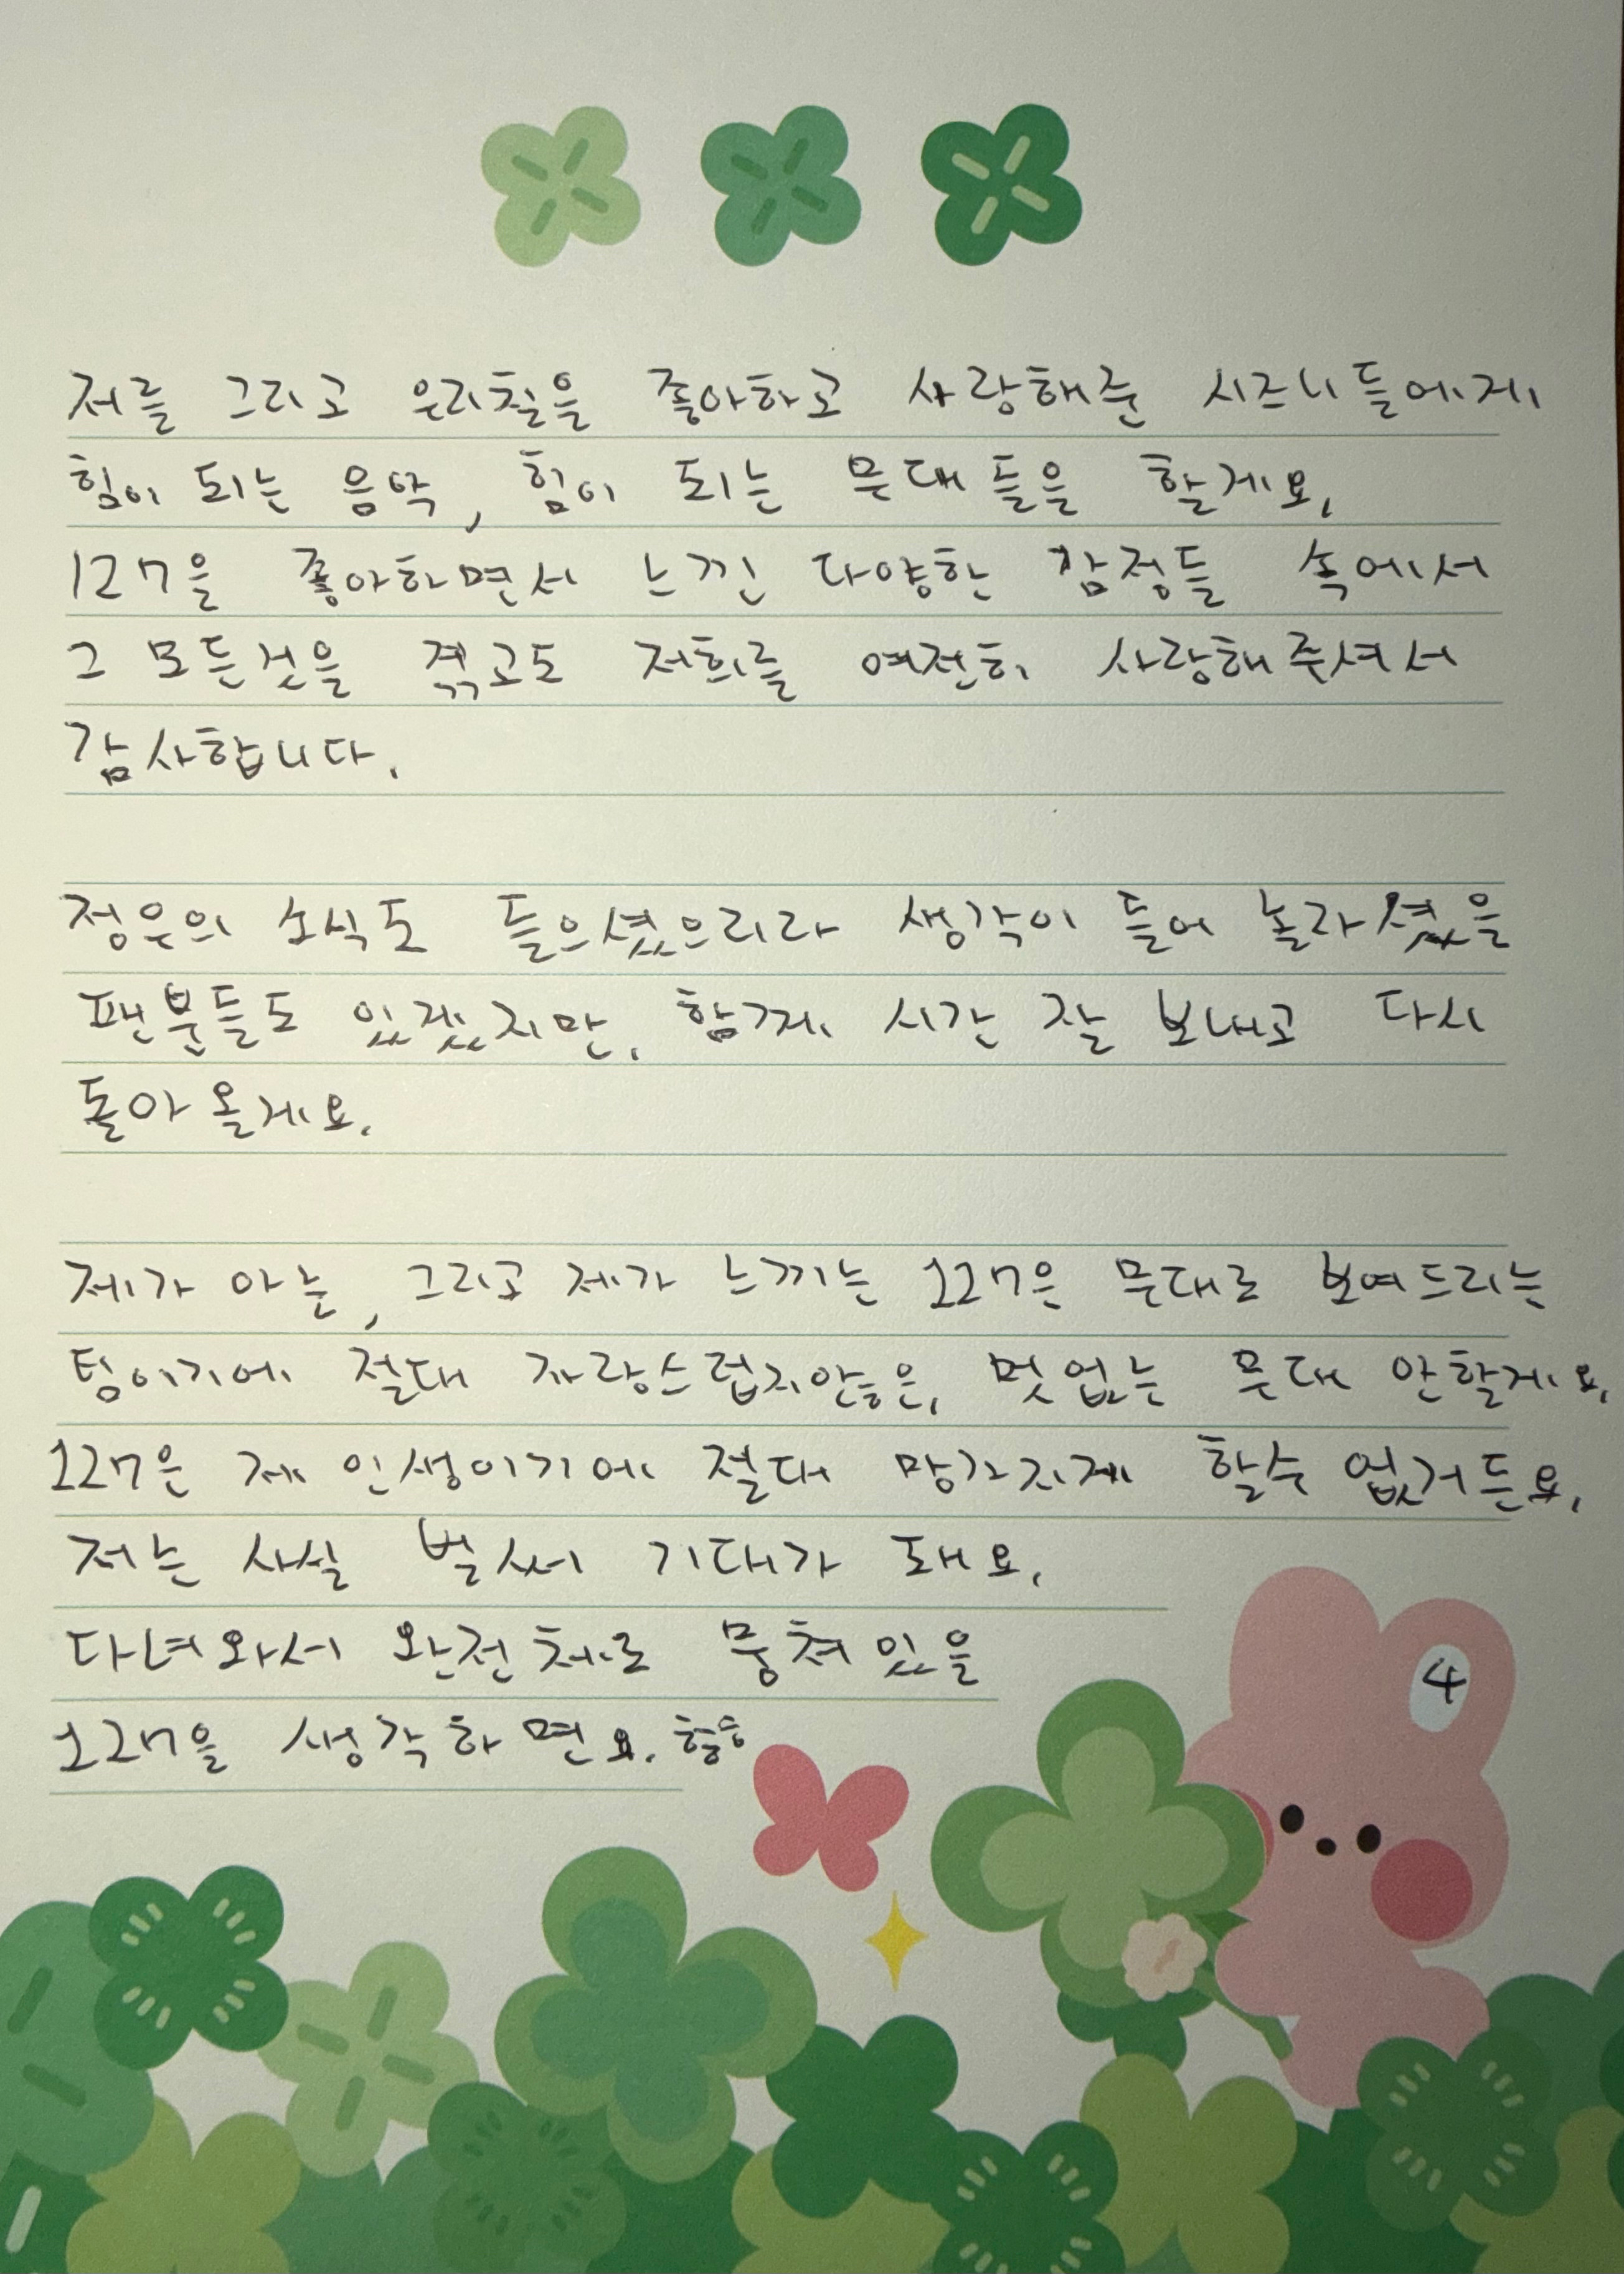 저를 그리고 우리칠을 좋아하고 사랑해준 시즈니들에게
힘이 되는 음악, 힘이 되는 무대들을 할게요,
127을 좋아하면서 느낀 다양한 감정들 속에서
그 모든것을 겪고도 저희를 여전히 사랑해주셔서
감사합니다.
정우의 소식도 들으셨으리라 생각이 들어 놀라셨을
팬분들도 있겠지만, 함께 시간 잘 보내고 다시
돌아올게요.
제가 아는, 그리고 제가 느끼는 127은 무대로 보여드리는
팀이기에 절대 자랑스럽지않은, 멋없는 무대 안할게요,
127은 제 인생이기에 절대 망가지게 할수 없거든요,
저는 사실 벌써 기대가 돼요,
다녀와서 완전체로 뭉쳐있을
127을 생각하면요. 흐흐
4